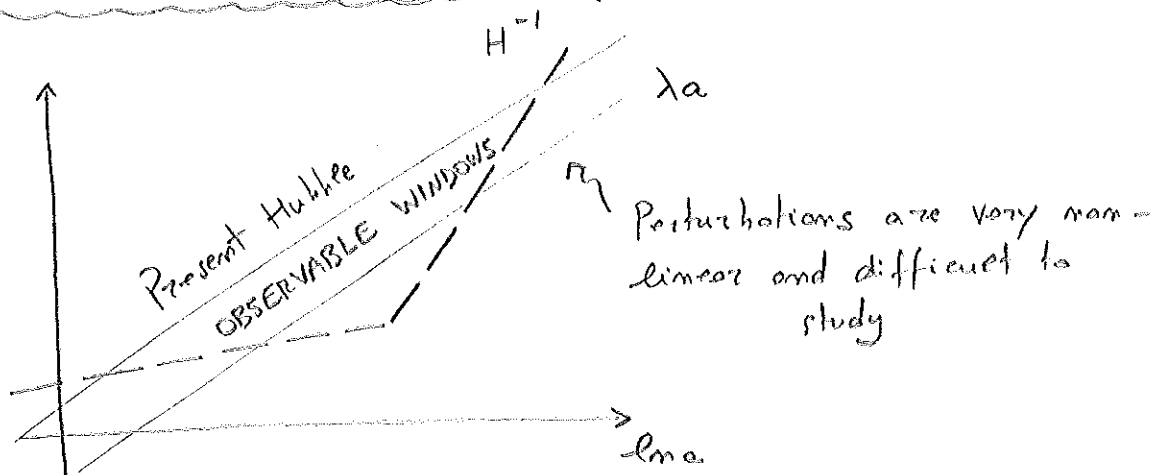 H⁻¹
λa
Present Hubble
OBSERVABLE WINDOWS
Perturbations are very non-
linear and difficult to
study
ln a